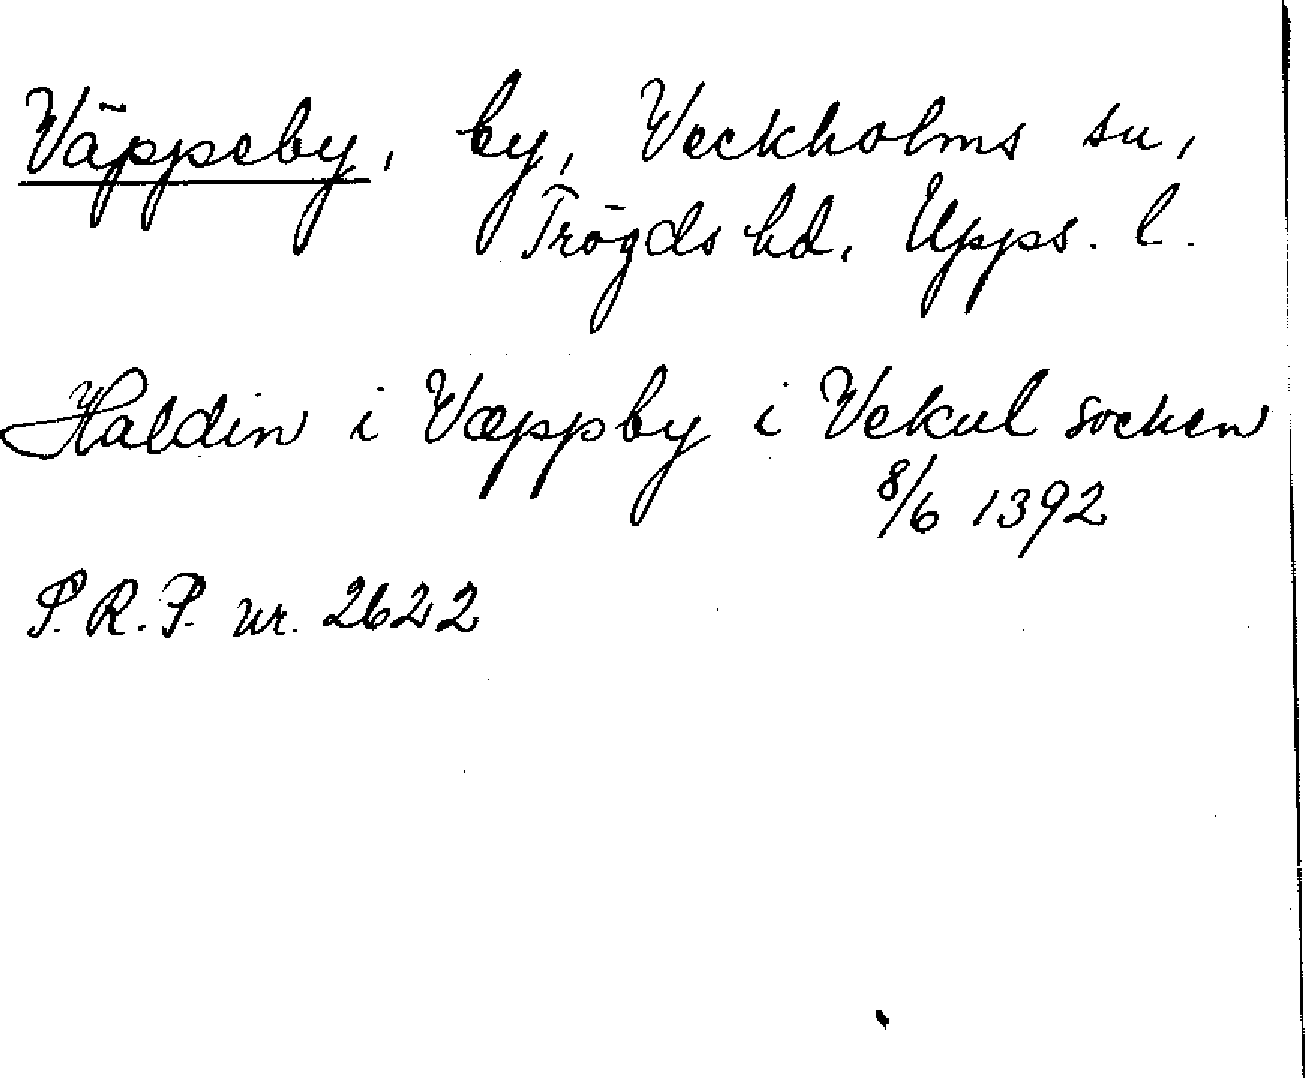 Väppeby, by, Veckholms sn,
Trögds hd. Upps. l.
Haldin i Væppby i Vekul socken
8/6 1392
S.R.P. nr. 2622